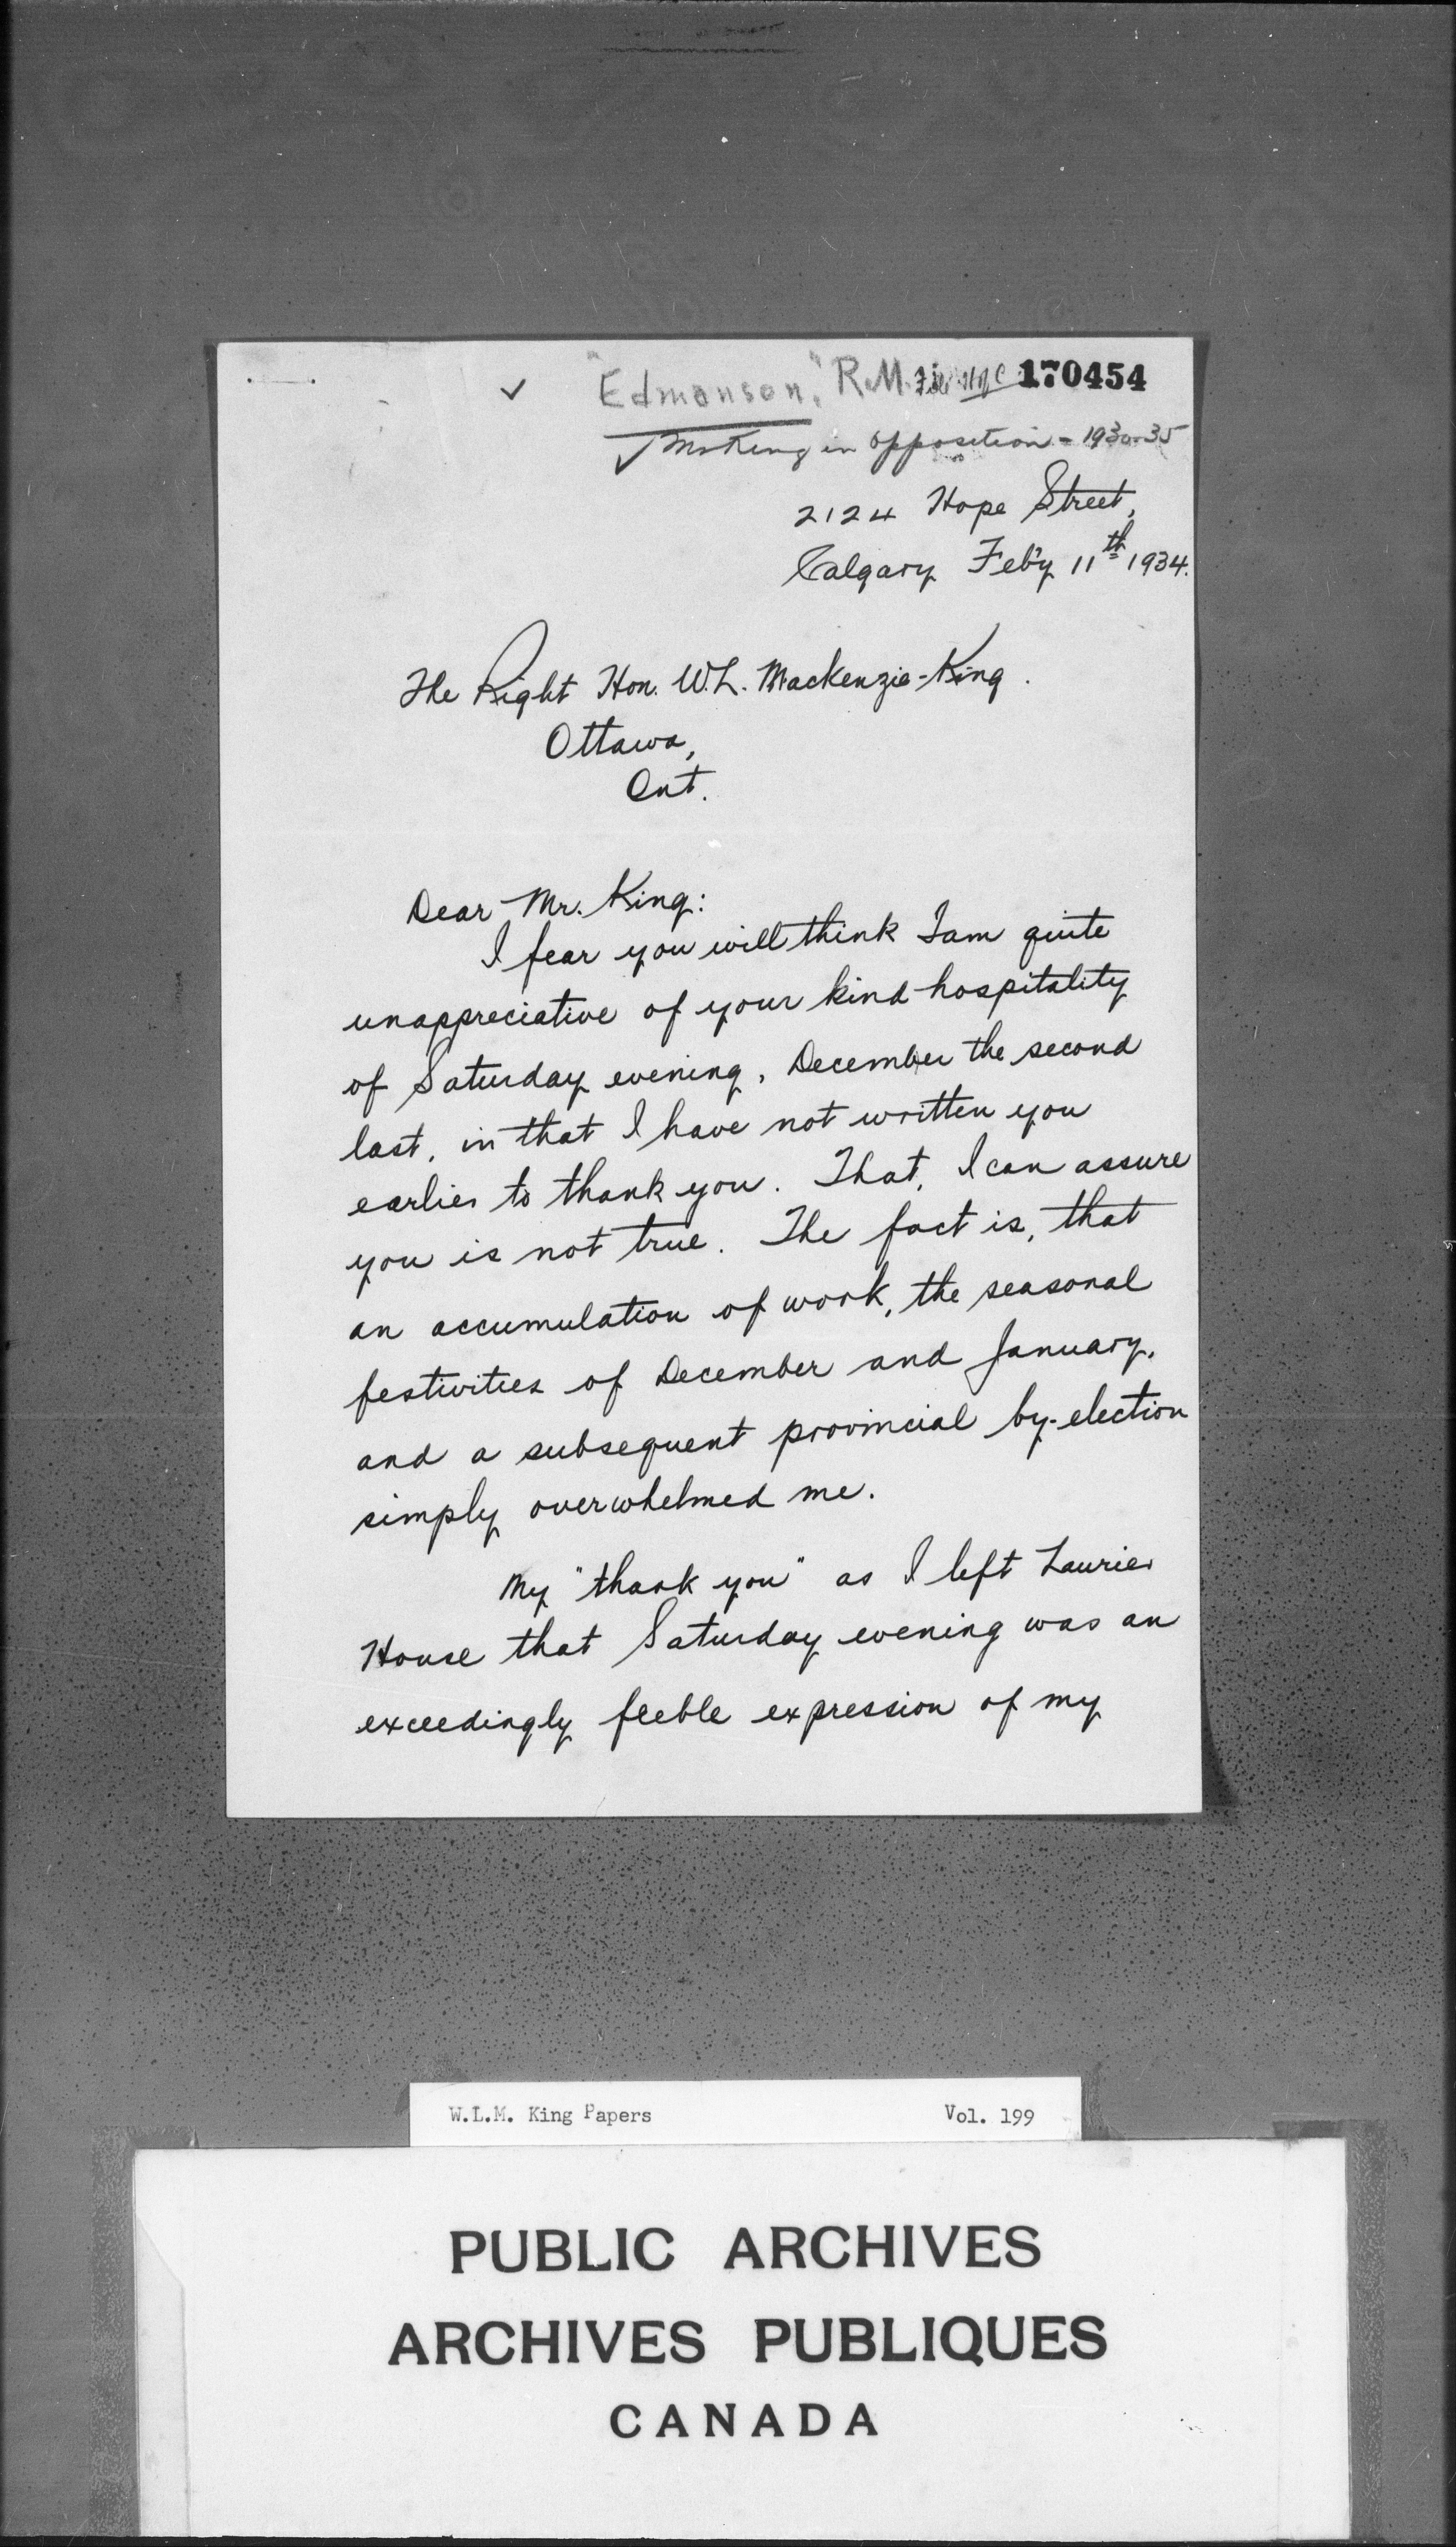 "Edmonson," R.M. File 170454
✓ Mr King in opposition - 1930-35
2124 Hope Street,
Calgary Feb'y 11th 1934.
The Right Hon. W.L. Mackenzie-King.
Ottawa,
Ont.
Dear Mr. King:
I fear you will think I am quite
unappreciative of your kind hospitality
of Saturday evening, December the second
last, in that I have not written you
earlier to thank you. That, I can assure
you is not true. The fact is, that
an accumulation of work, the seasonal
festivities of December and January,
and a subsequent provincial by-election
simply overwhelmed me.
My "thank you" as I left Laurier
House that Saturday evening was an
exceedingly feeble expression of my
W.L.M. King Papers Vol. 199
PUBLIC ARCHIVES
ARCHIVES PUBLIQUES
CANADA